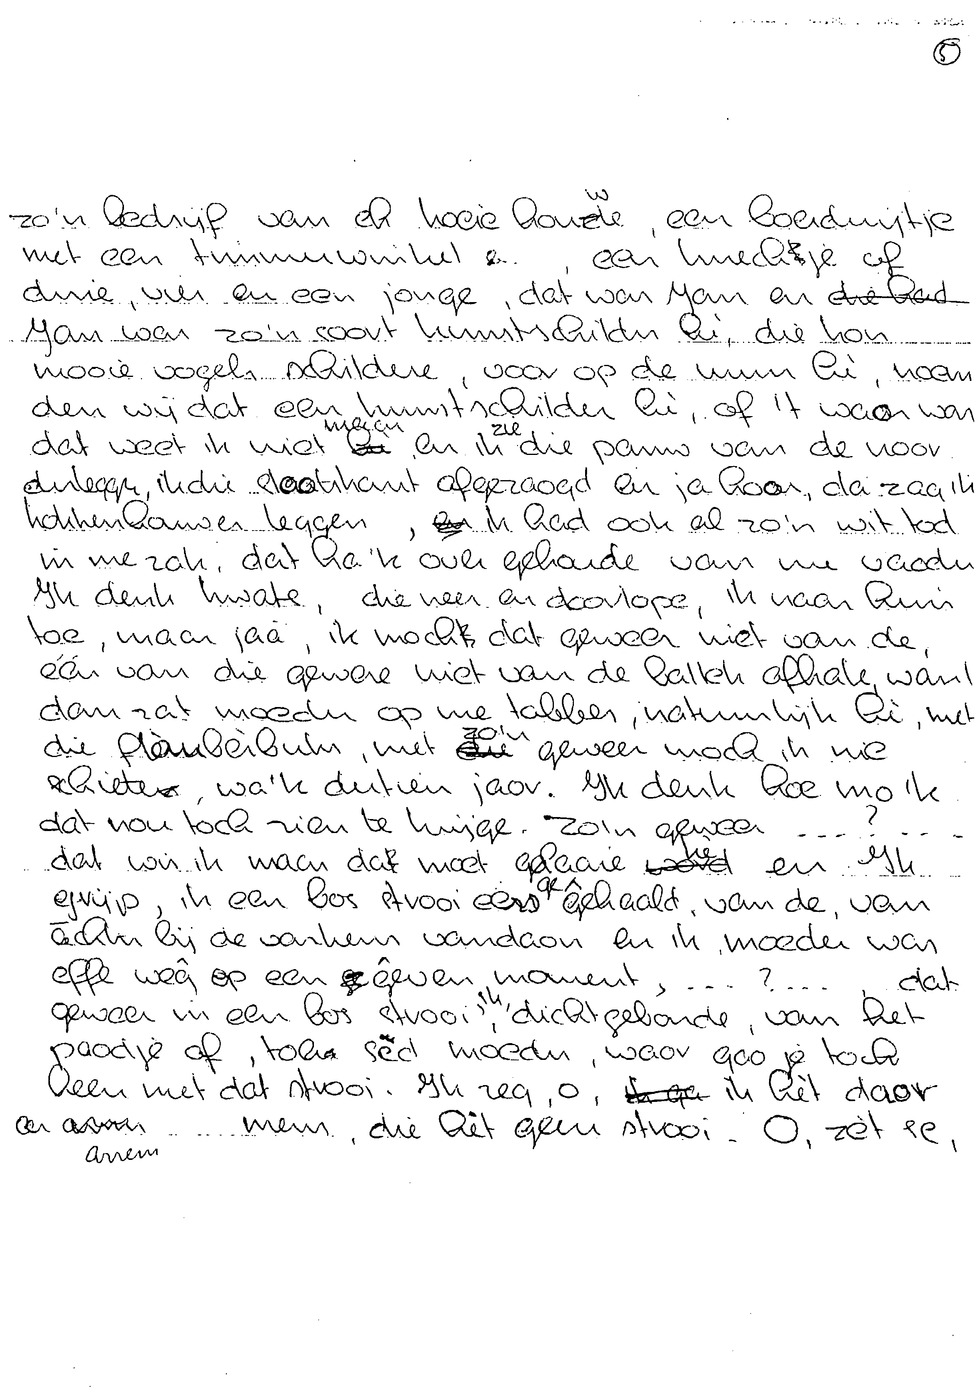 5
zo'n bedrijf van ek koeie houwe, een boerderijtje
met een timmerwinkel e.. , een knechtje of
drie, vier en een jonge, dat was Jan en die had
Jan was zo'n soort kunstschilder hè, die kon
mooie vogels schildere, voor op de muur hè, noem
den wij dat een kunstschilder hè, of 't waor was
dat weet ik niet maar en ik zie die panne van de noor
derlegge, ik die slootkant afgezaogd en ja hoor, da zag ik
hokkenhouwer leggen, en ik had ook al zo'n wit tod
in me zak, dat ha'k over gehoude van me vaader
Ik denk kwate, die neer en doorlope, ik naar huis
toe, maar jaā, ik mocht dat geweer niet van de,
één van die gewere niet van de balken afhale, want
dan zat moeder op me tabber, natuurlijk hè, met
die flauberbuks, met die zo'n geweer moch ik nie
schiete, wa'k dertien jaor. Ik denk hoe mo ik
dat nou toch zien te krijge. Zo'n geweer ....?....
dat wis ik maar dat moet gelaaie word hè en Ik
egrijp, ik een bos strooi eers ge gehaald, van de, van
achter bij de varkens vandaon en ik, moeder was
effe weg op een gegeven moment, ....?...., dat
geweer in een bos strooi, ik, dichtgebonde, van het
paodje of, toen sèd moeder, waor gao je toch
heen met dat strooi. Ik zeg, o, ik ga ik hèt daor
an arrem mens, die hèt geen strooi. O, zèt se,
arrem